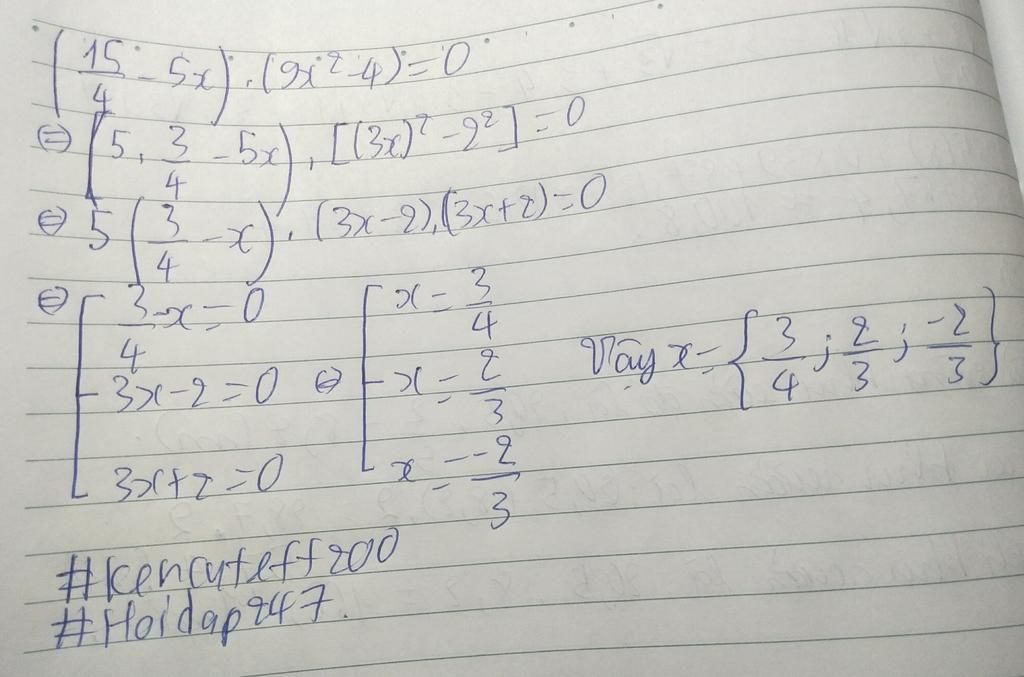 (15/4 - 5x).(9x² - 4) = 0
⇔ (5.3/4 - 5x).[(3x)² - 2²] = 0
⇔ 5(3/4 - x).(3x-2).(3x+2) = 0
⇔ [3/4 - x = 0 ⇔ [x = 3/4
3x-2 = 0 x = 2/3 Vậy x = {3/4; 2/3; -2/3}
3x+2 = 0 x = -2/3
#kencuteff200
#Hoidap247.